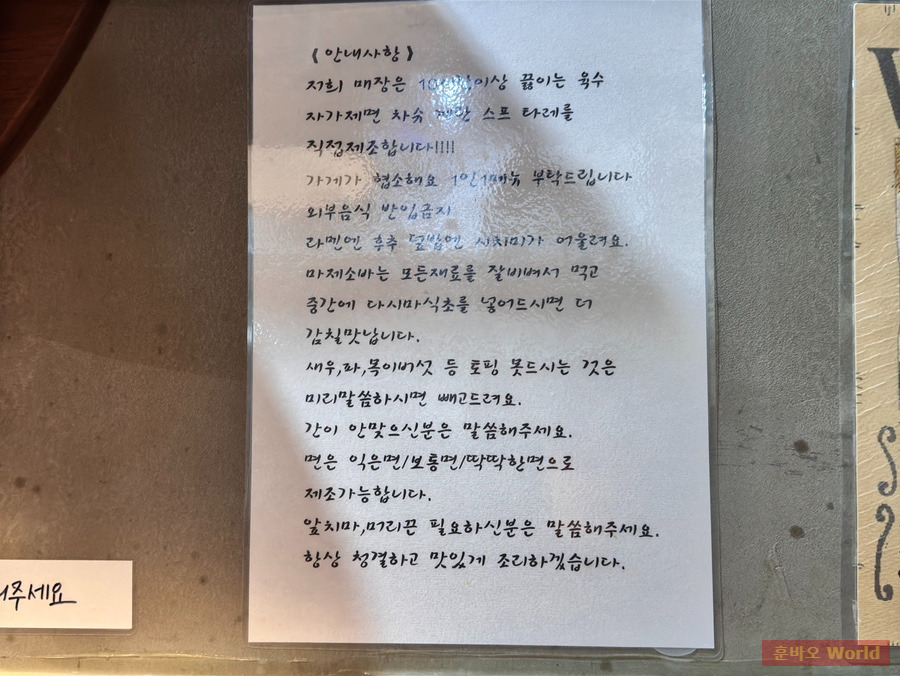 《안내사항》
저희 매장은 이상 끓이는 육수
자가제면 차슈 계란 스프 타레를
직접제조합니다!!!!
가게가 협소해요 1인1메뉴 부탁드립니다
외부음식 반입금지
라멘엔 후추 덮밥엔 시치미가 어울려요.
마제소바는 모든재료를 잘비벼서 먹고
중간에 다시마식초를 넣어드시면 더
감칠맛납니다.
새우,파,목이버섯 등 토핑 못드시는 것은
미리말씀하시면 빼고드려요.
간이 안맞으신분은 말씀해주세요.
면은 익은면/보통면/딱딱한면으로
제조가능합니다.
앞치마,머리끈 필요하신분은 말씀해주세요.
항상 청결하고 맛있게 조리하겠습니다.
주세요
훈바오 World